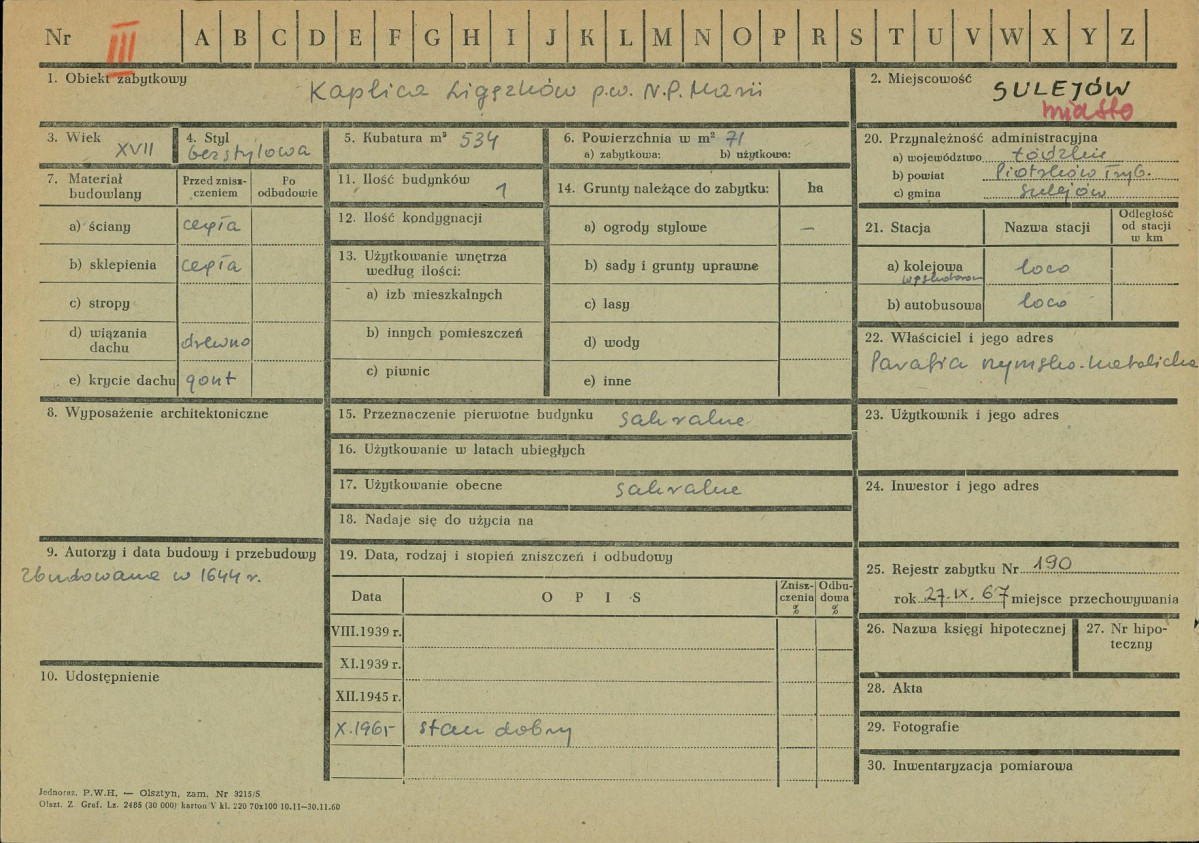 Nr III A B C D E F G H I J K L M N O P R S T U V W X Y Z
1. Obiekt zabytkowy
Kaplica Ligęzków p.w. N.P. Marii
2. Miejscowość
SULEJÓW
miasto
3. Wiek
XVII
4. Styl
bezstylowa
5. Kubatura m³ 534
6. Powierzchnia w m² 71
a) zabytkowa: b) użytkowa:
20. Przynależność administracyjna
a) województwo Łódzkie
b) powiat Piotrków Tryb.
c) gmina Sulejów
7. Materiał budowlany
Przed zniszczeniem
Po odbudowie
a) ściany cegła
b) sklepienia cegła
c) stropy
d) wiązania dachu drewno
e) krycie dachu gont
11. Ilość budynków 1
12. Ilość kondygnacji
13. Użytkowanie wnętrza
według ilości:
a) izb mieszkalnych
b) innych pomieszczeń
c) piwnic
14. Grunty należące do zabytku: ha
a) ogrody stylowe –
b) sady i grunty uprawne
c) lasy
d) wody
e) inne
21. Stacja Nazwa stacji
Odległość od stacji w km
a) kolejowa loco
b) autobusowa loco
22. Właściciel i jego adres
Parafia rzymsko-katolicka
8. Wyposażenie architektoniczne
15. Przeznaczenie pierwotne budynku sakralne
16. Użytkowanie w latach ubiegłych
17. Użytkowanie obecne sakralne
18. Nadaje się do użycia na
23. Użytkownik i jego adres
24. Inwestor i jego adres
9. Autorzy i data budowy i przebudowy
Zbudowana w 1644 r.
10. Udostępnienie
19. Data, rodzaj i stopień zniszczeń i odbudowy
Data O P I S
Zniszczenia %
Odbudowa %
VIII.1939 r.
XI.1939 r.
XII.1945 r.
X.1965 stan dobry
25. Rejestr zabytku Nr 190
rok 27.IX.67 miejsce przechowywania
26. Nazwa księgi hipotecznej
27. Nr hipoteczny
28. Akta
29. Fotografie
30. Inwentaryzacja pomiarowa
Jednoraz. P.W.H. — Olsztyn, zam. Nr 3215/S
Olszt. Z. Graf. Lz. 2485 (30 000) karton V kl. 220 70x100 10.11—30.11.60